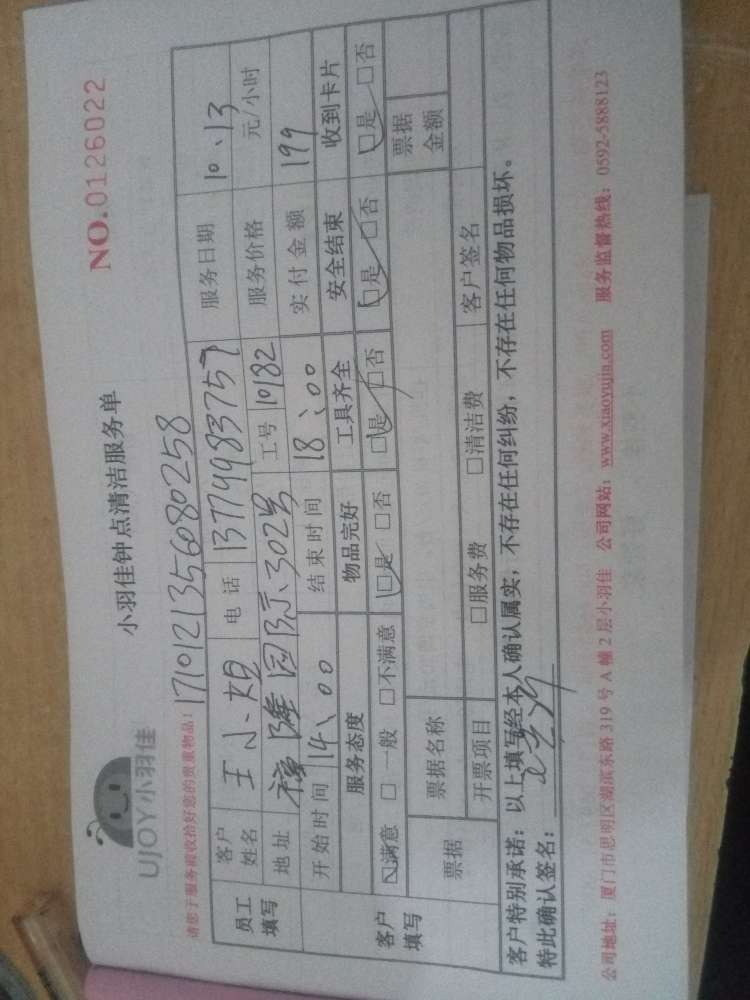 UJOY小羽佳
小羽佳钟点清洁服务单
NO.0126022
请您于服务前收拾好您的贵重物品!
171012135680258
员工填写
客户姓名 王小姐 电话 13774983757 服务日期 10、13
地址 禧隆国际、302号 工号 10182 服务价格 元/小时
开始时间 14、00 结束时间 18、00 实付金额 199
客户填写
服务态度 物品完好 工具齐全 安全结束 收到卡片
☑满意 □一般 □不满意 ☑是 □否 ☑是 □否 ☑是 □否 ☑是 □否
票据 票据名称 票据金额
开票项目 □服务费 □清洁费 客户签名
客户特别承诺:以上填写经本人确认属实,不存在任何纠纷,不存在任何物品损坏。
特此确认签名:
公司地址:厦门市思明区湖滨东路 319 号 A 幢 2 层小羽佳 公司网站:www.xiaoyujia.com 服务监督热线:0592-5888123